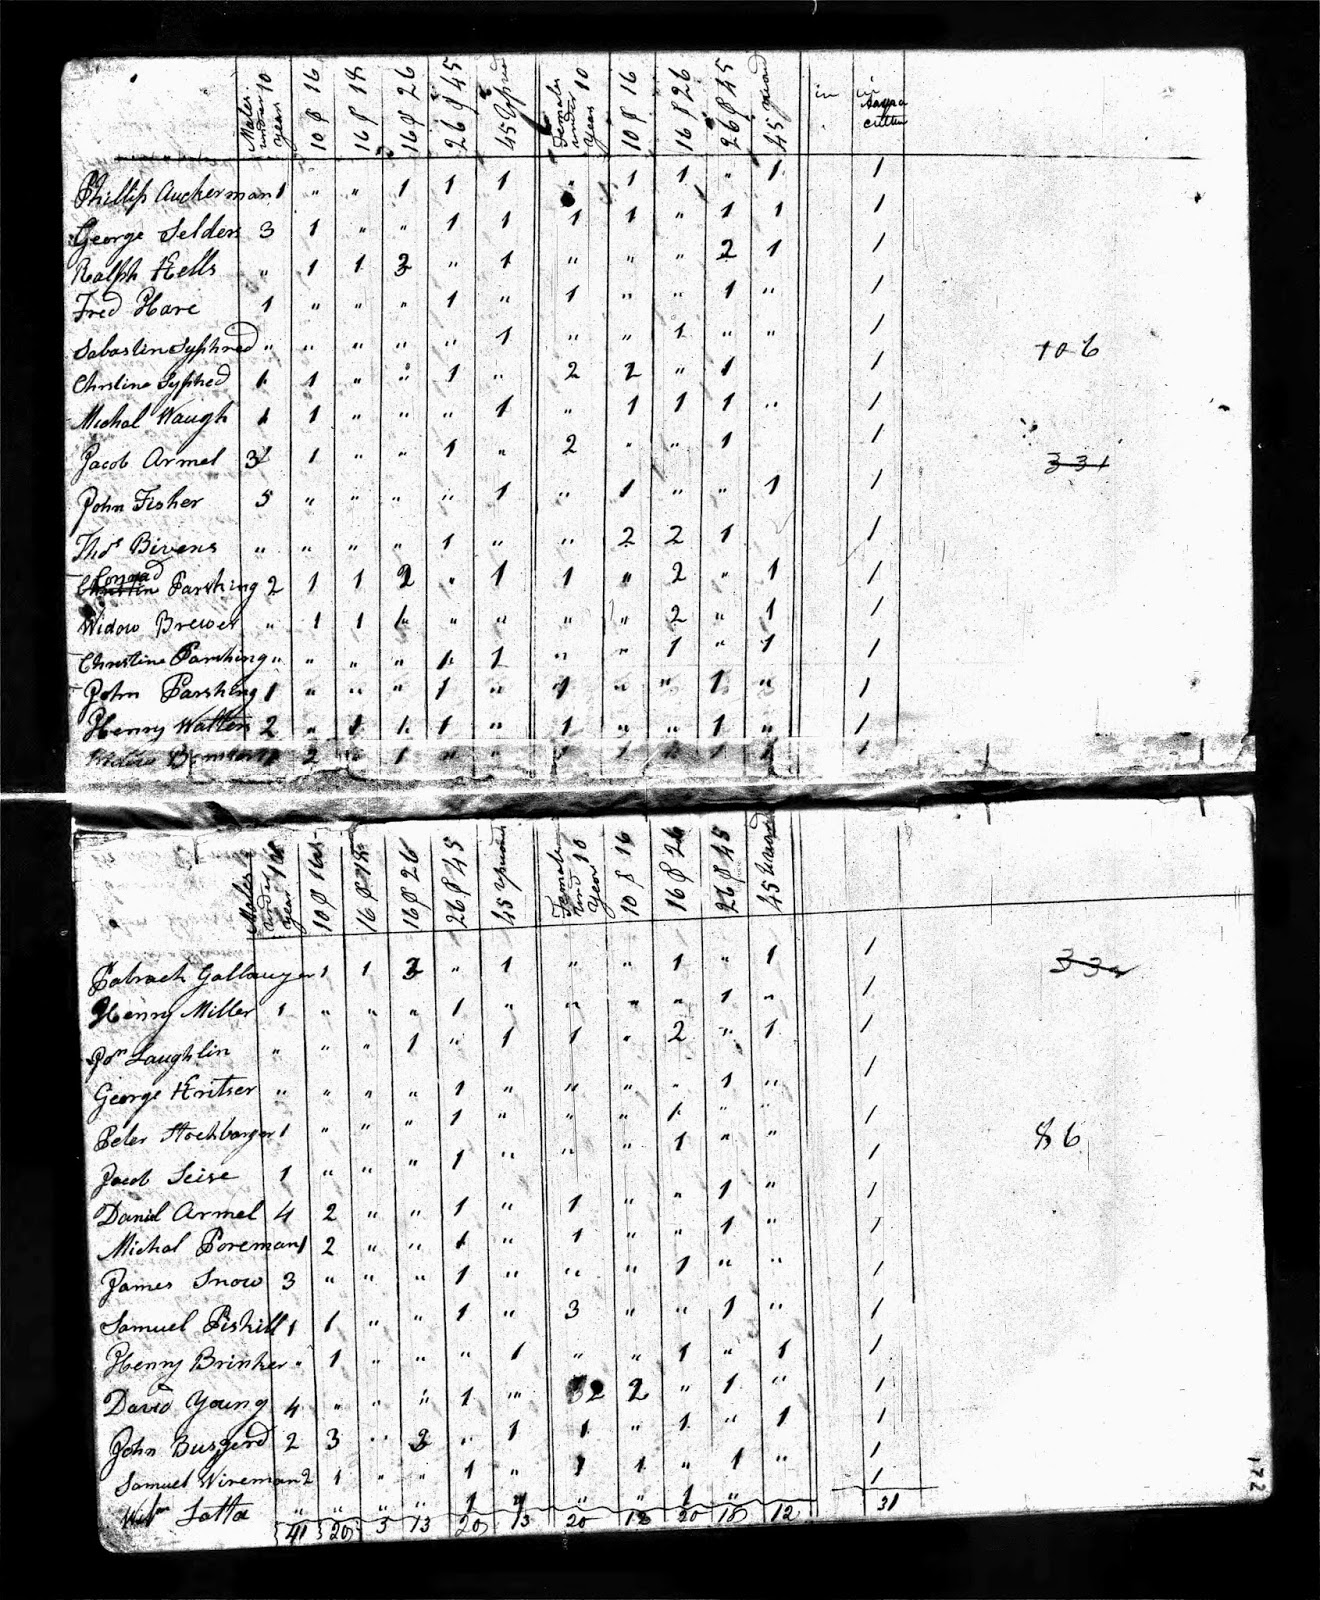 Males under 10 years 10 & 16 16 & 18 16 & 26 26 & 45 45 upward Females under 10 years 10 & 16 16 & 26 26 & 45 45 upward in in
Phillip Auckerman 1 " " 1 1 1 " 1 1 " 1 1
George Selders 3 1 " " 1 1 1 1 " 1 1 1
Ralph Kells " 1 1 3 " 1 " " " 2 1 1
Fred Hare 1 " " " 1 " 1 " " 1 " 1
Sabastin Syphred " " " " " 1 " " 1 " " 1
106
Christine Syphed 1 1 " " 1 " 2 2 " 1 1
Michal Waugh 1 1 " " " 1 " 1 1 1 " 1
Jacob Armel 3 1 " " 1 " 2 " " 1 1
331
John Fisher 5 " " " " 1 " 1 " " 1 1
Thos Bivens " " " " 1 " " 2 2 1 1
Conrad
Christin Parshing 2 1 1 2 " 1 1 " 2 " 1 1
Widow Brewer " 1 1 1 " " " " 2 " 1 1
Christine Parshing " " " " 1 1 " " 1 " 1 1
John Parshing 1 " " " 1 " 1 " " 1 " 1
Henry Watters 2 " 1 1 1 " 1 " " 1 " 1
Widow 2 " 1 " " 1 1 " 1 1 1
Males under 10 year 10 & 16 16 & 18 16 & 26 26 & 45 45 upward Females und 10 Year 10 & 16 16 & 26 26 & 45 45 upward
Patrack Gallauger 1 1 3 " 1 " " 1 " 1 1
Henry Miller 1 " " " 1 " " " " 1 " 1
Jon Laughlin " " " 1 " 1 1 " 2 " 1 1
George Kritser " " " " 1 " " " " 1 " 1
Peter Hochbarger 1 " " " 1 " " " 1 " " 1
86
Jacob Seise 1 " " " 1 " " " 1 " " 1
Daniel Armel 4 2 " " 1 " 1 " " 1 " 1
Michal Poreman 1 2 " " 1 " 1 " " 1 " 1
James Snow 3 " " " 1 " " " 1 " " 1
Samuel Piskill 1 1 " " 1 " 3 " " 1 " 1
Henry Brinker " 1 " " " 1 " " 1 " 1 1
David Young 4 " " " 1 " 2 2 " 1 " 1
John Busgerd 2 3 " 2 " 1 1 " 1 " 1 1
Samuel Wireman 2 1 " " 1 " 1 1 " 1 " 1
172
Lotta " " " " 1 " " 1 "
41 20 5 13 20 13 20 18 20 18 12 31